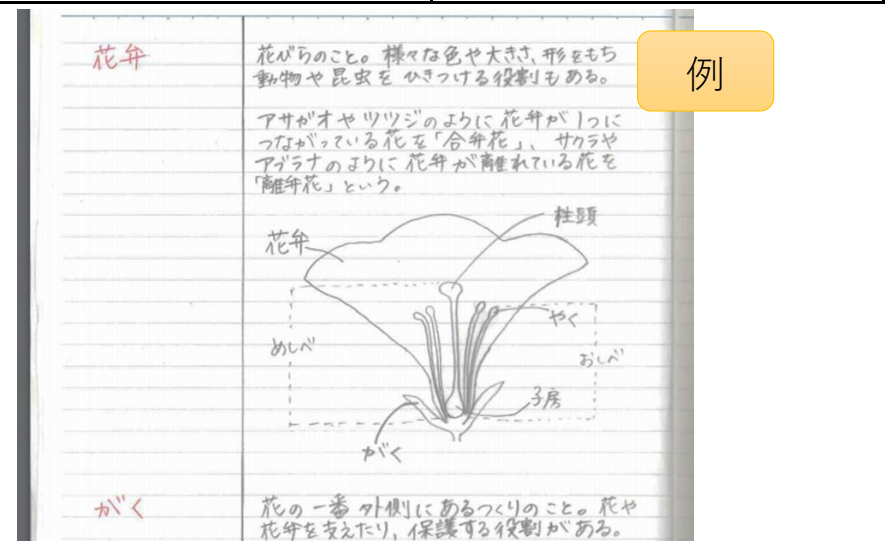 例
花弁
花びらのこと。様々な色や大きさ、形をもち
動物や昆虫をひきつける役割もある。
アサガオやツツジのように花弁が1つに
つながっている花を「合弁花」、サクラや
アブラナのように花弁が離れている花を
「離弁花」という。
柱頭
花弁
やく
めしべ
おしべ
子房
がく
がく
花の一番外側にあるつくりのこと。花や
花弁を支えたり、保護する役割がある。